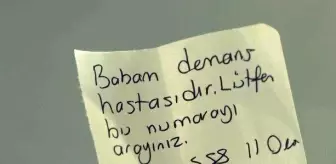 Babam demans
hastasıdır. Lütfen
bu numarayı
arayınız.
558 110